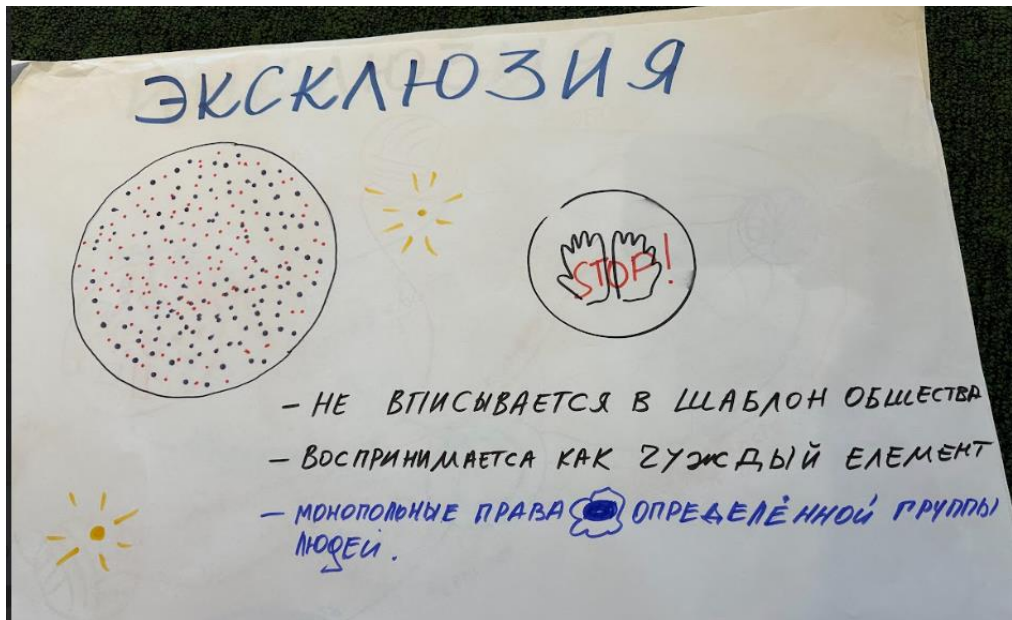 ЭКСКЛЮЗИЯ
STOP!
- НЕ ВПИСЫВАЕТСЯ В ШАБЛОН ОБШЕСТВА
- ВОСПРИНИМАЕТСА КАК ЧУЖДЫЙ ЕЛЕМЕНТ
- МОНОПОЛЬНЫЕ ПРАВА ОПРЕДЕЛЁННОЙ ГРУППЫ
ЛЮДЕЙ.